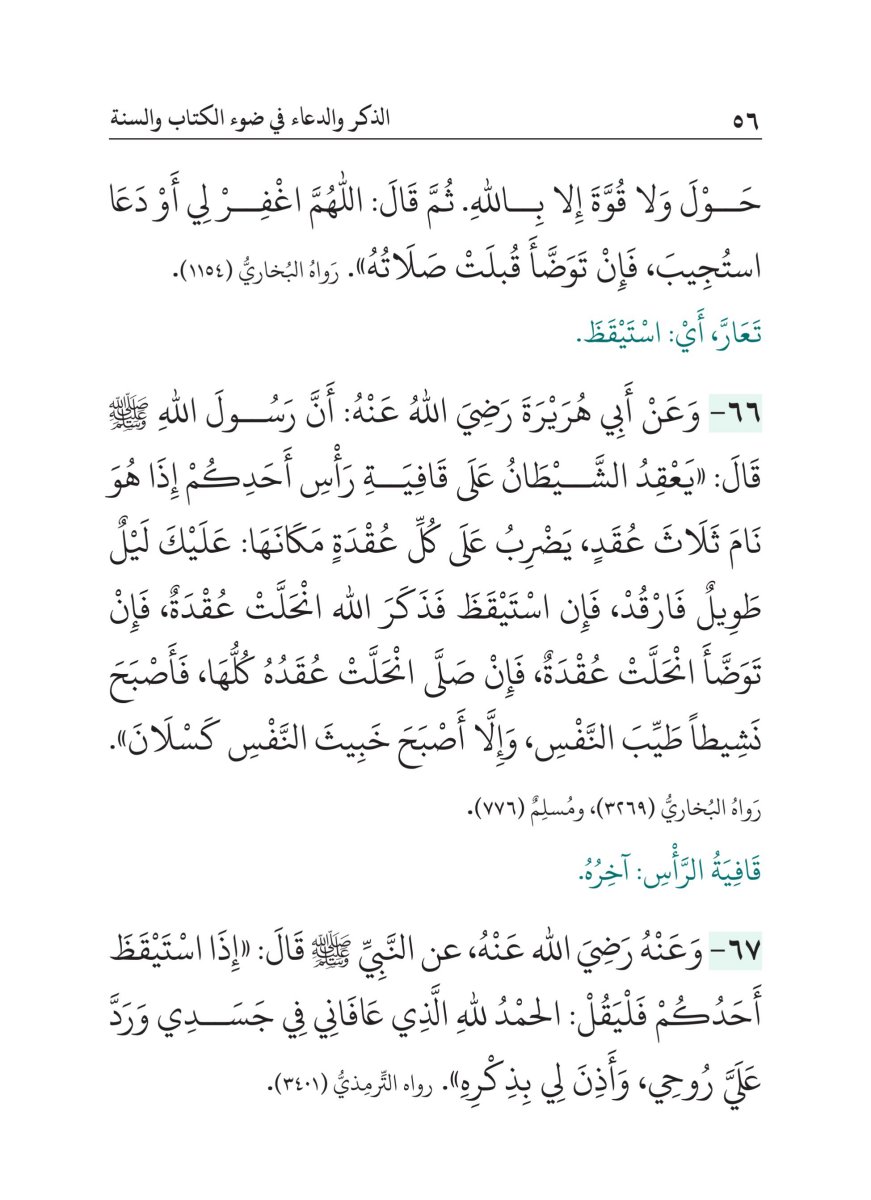 ٥٦ الذكر والدعاء في ضوء الكتاب والسنة
حَـــوْلَ وَلا قُوَّةَ إِلا بِـــاللهِ. ثُمَّ قَالَ: اللهُمَّ اغْفِـــرْ لِي أَوْ دَعَا
استُجِيبَ، فَإِنْ تَوَضَّأَ قُبلَتْ صَلَاتُهُ». رَواهُ البُخاريُّ (١١٥٤).
تَعَارَّ، أَيْ: اسْتَيْقَظَ.
٦٦- وَعَنْ أَبِي هُرَيْرَةَ رَضِيَ اللهُ عَنْهُ: أَنَّ رَسُـــولَ اللهِ ﷺ
قَالَ: «يَعْقِدُ الشَّـــيْطَانُ عَلَى قَافِيَـــةِ رَأْسِ أَحَدِكُمْ إِذَا هُوَ
نَامَ ثَلَاثَ عُقَدٍ، يَضْرِبُ عَلَى كُلِّ عُقْدَةٍ مَكَانَهَا: عَلَيْكَ لَيْلٌ
طَوِيلٌ فَارْقُدْ، فَإِن اسْتَيْقَظَ فَذَكَرَ الله انْحَلَّتْ عُقْدَةٌ، فَإِنْ
تَوَضَّأَ انْحَلَّتْ عُقْدَةٌ، فَإِنْ صَلَّى انْحَلَّتْ عُقَدُهُ كُلُّهَا، فَأَصْبَحَ
نَشِيطاً طَيِّبَ النَّفْسِ، وَإِلَّا أَصْبَحَ خَبِيثَ النَّفْسِ كَسْلَانَ».
رَواهُ البُخاريُّ (٣٢٦٩)، ومُسلِمٌ (٧٧٦).
قَافِيَةُ الرَّأْسِ: آخِرُهُ.
٦٧- وَعَنْهُ رَضِيَ الله عَنْهُ، عن النَّبِيِّ ﷺ قَالَ: «إِذَا اسْتَيْقَظَ
أَحَدُكُمْ فَلْيَقُلْ: الحمْدُ للهِ الَّذِي عَافَانِي فِي جَسَـــدِي وَرَدَّ
عَلَيَّ رُوحِي، وَأَذِنَ لِي بِذِكْرِهِ». رواه التِّرمِذيُّ (٣٤٠١).